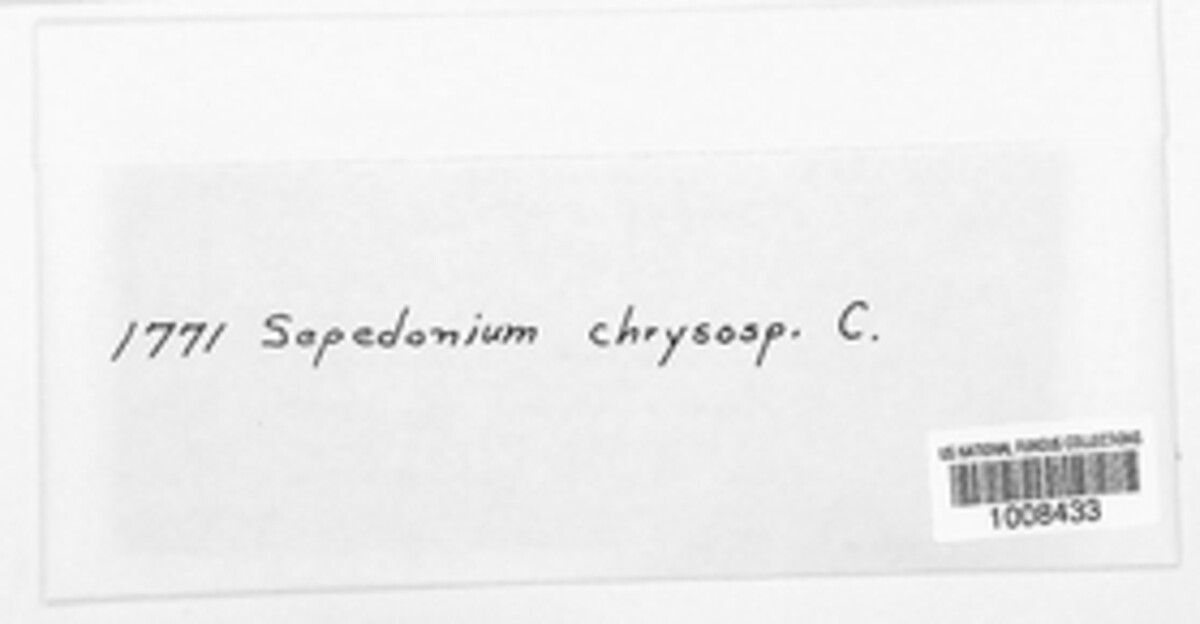 1771 Sepedonium chrysosp. C.
US NATIONAL FUNGUS COLLECTIONS
1008433